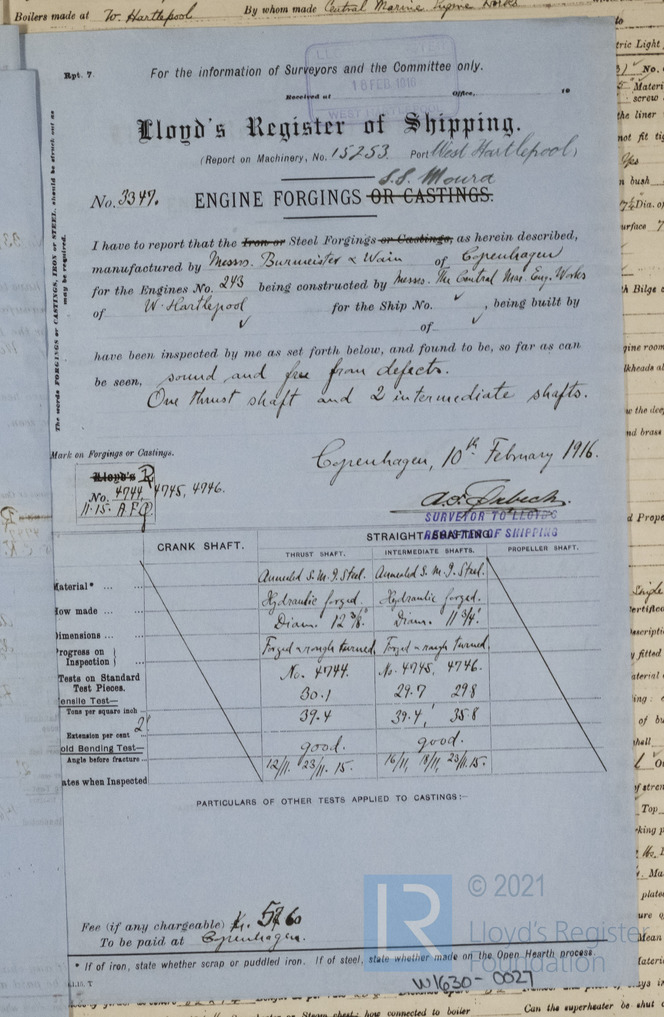 Boilers made at W. Hartlepool By whom made Central Marine Engine Works
Rpt. 7.
For the information of Surveyors and the Committee only.
Received at Office, 19
16 FEB. 1916
WEST HARTLEPOOL
Lloyd's Register of Shipping.
(Report on Machinery, No. 15253. Port West Hartlepool)
S.S. Moura
No. 3347. ENGINE FORGINGS OR CASTINGS.
The words FORGINGS or CASTINGS, IRON or STEEL, should be struck out as
may be required.
I have to report that the Iron or Steel Forgings or Castings, as herein described,
manufactured by Messrs. Burmeister & Wain of Copenhagen
for the Engines No. 243 being constructed by Messrs. The Central Mar. Eng. Works
of W. Hartlepool for the Ship No. ✓, being built by
✓ of ✓
have been inspected by me as set forth below, and found to be, so far as can
be seen, sound and free from defects.
One thrust shaft and 2 intermediate shafts.
Mark on Forgings or Castings.
Copenhagen, 10th February 1916.
Lloyd's R
No. 4744, 4745, 4746.
11.15.
SURVEYOR TO LLOYDS
REGISTER OF SHIPPING
STRAIGHT SHAFTING.
CRANK SHAFT. THRUST SHAFT. INTERMEDIATE SHAFTS. PROPELLER SHAFT.
Material* ... Annealed S. M. I. Steel. Annealed S. M. I. Steel.
How made ... Hydraulic forged. Hydraulic forged.
Dimensions ... Diam. 12 3/8" Diam. 11 3/4"
Progress on Inspection } ... Forged & rough turned. Forged & rough turned.
Tests on Standard Test Pieces. No. 4744. No. 4745, 4746.
Tensile Test—
Tons per square inch 30.1 29.7 29.8
Extension per cent 2" 39.4 39.4, 35.8
Cold Bending Test—
Angle before fracture good. good.
Dates when Inspected 12/11. 23/11. 15. 16/11, 18/11, 23/11.15.
PARTICULARS OF OTHER TESTS APPLIED TO CASTINGS:—
Fee (if any chargeable) Kr.
To be paid at Copenhagen.
* If of iron, state whether scrap or puddled iron. If of steel, state whether made on the Open Hearth process.
© 2021
LR
Lloyd's Register
Foundation
W1630-0027
Can the superheater be shut